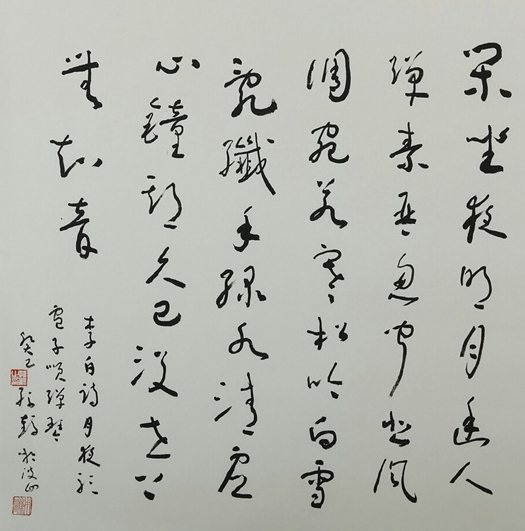 閑坐夜明月幽人
彈素琴忽聞悲風
調宛若寒松吟白雪
亂纖手綠水清虛
心鐘期久已沒世上
無知音
李白詩月夜聽
盧子順彈琴